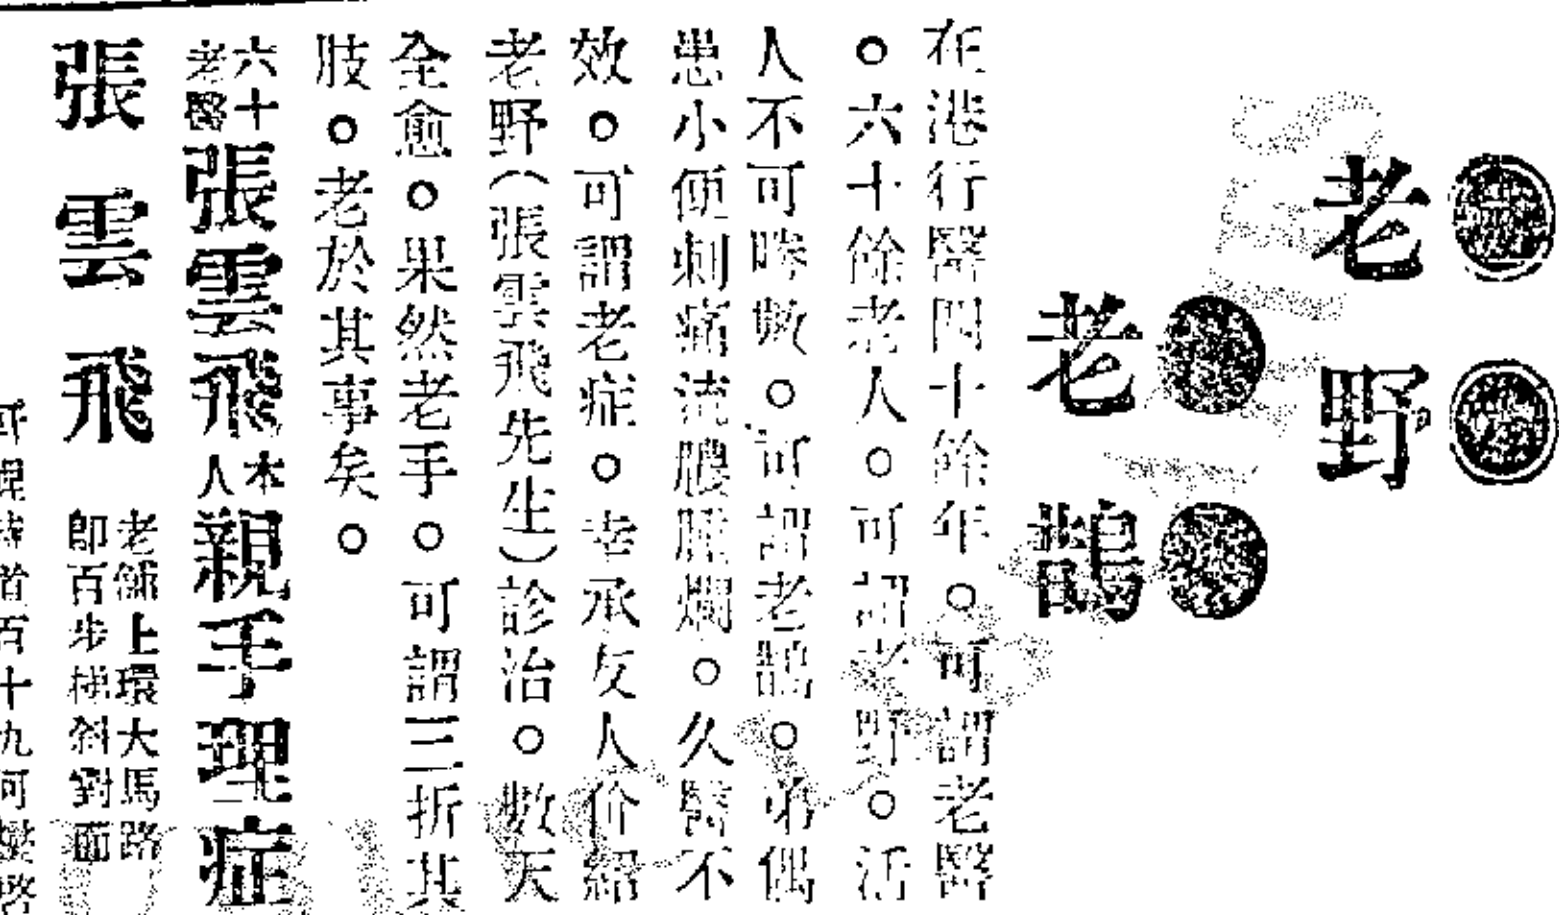 老野
老鵲
在港行醫四十餘年。可謂老醫
。六十餘老人。可謂老野。活
人不可勝數。可謂老鵲。弟偶
患小便刺痛流膿腫爛。久醫不
效。可謂老症。幸承友人介紹
老野（張雲飛先生）診治。數天
全愈。果然老手。可謂三折其
肢。老於其事矣。
六十老醫張雲飛本人親手理症
張雲飛
老舖上環大馬路
卽百步梯斜對面